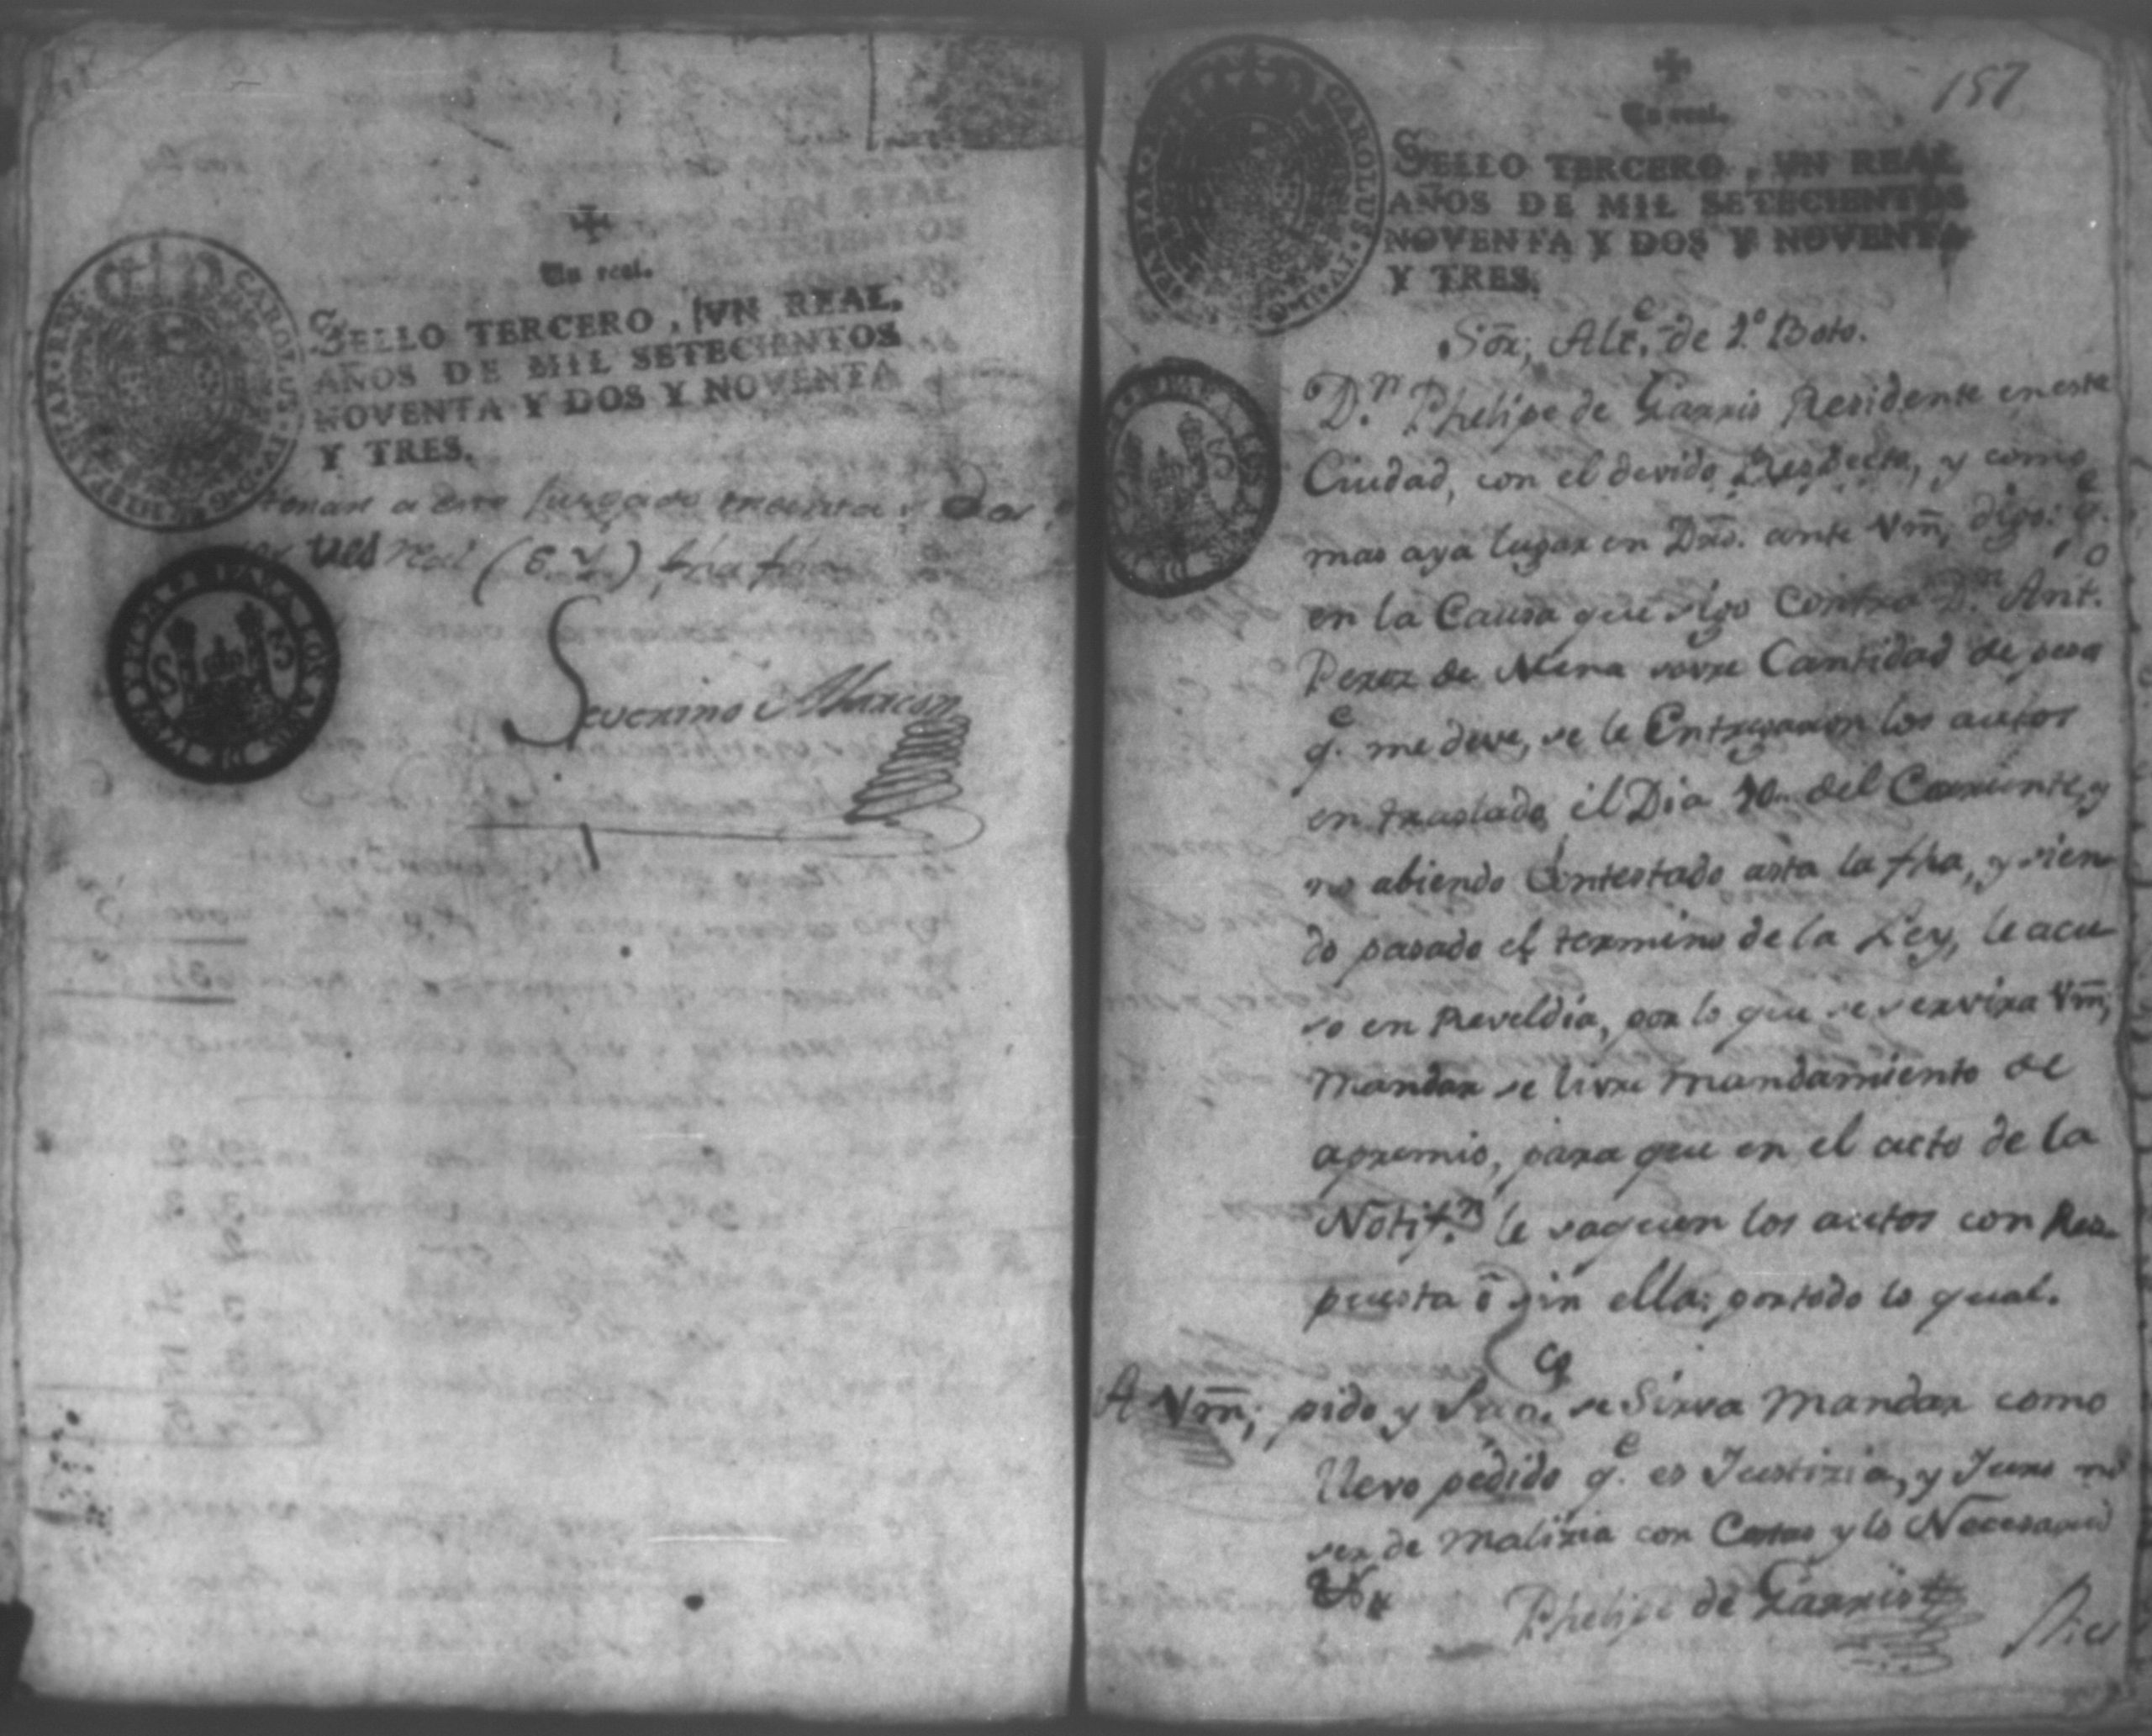 Un real.
SELLO TERCERO, UN REAL.
AÑOS DE MIL SETECIENTOS
NOVENTA Y DOS Y NOVENTA
Y TRES.
a este Juzgado treinta y dos
tres rea
Severino Alarcon
157
Un real.
SELLO TERCERO, UN REAL
AÑOS DE MIL SETECIENTOS
NOVENTA Y DOS Y NOVENTA
Y TRES.
Sor, Alce. de 2º Boto.
Dn. Phelipe de Garris Residente en esta
Ciudad, con el devido Respecto, y como
mas aya lugar en Dro. ante Vm, digo: qe.
en la Causa que sigo Contra Dn. Anto.
Perez de Mena sovre Cantidad de pesos
qe. me deve, se le Entregaron los autos
en traslado el Dia 10 del Corriente, y
no abiendo Contestado asta la fha, y sien-
do pasado el termino de la Ley, le acu-
so en Reveldia, por lo que se servira Vm,
mandar se livre mandamiento de
apremio, para que en el acto de la
Notifn. le saquen los autos con Res-
puesta ó sin ella; por todo lo qual.
A Vm; pido y Supco. se Sirva mandar como
llevo pedido qe. es Justizia, y Juro no
ser de malizia con Costas y lo Necesario
Phelipe de Garris